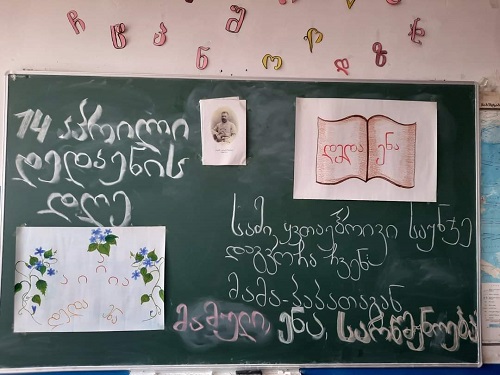 14 აპრილი
დედაენის
დღე
დედა ენა
სამი ღვთაებრივი საუნჯე
დაგვრჩა ჩვენ
მამა-პაპათაგან
მამული ენა, სარწმუნოება
აი ია
დედა